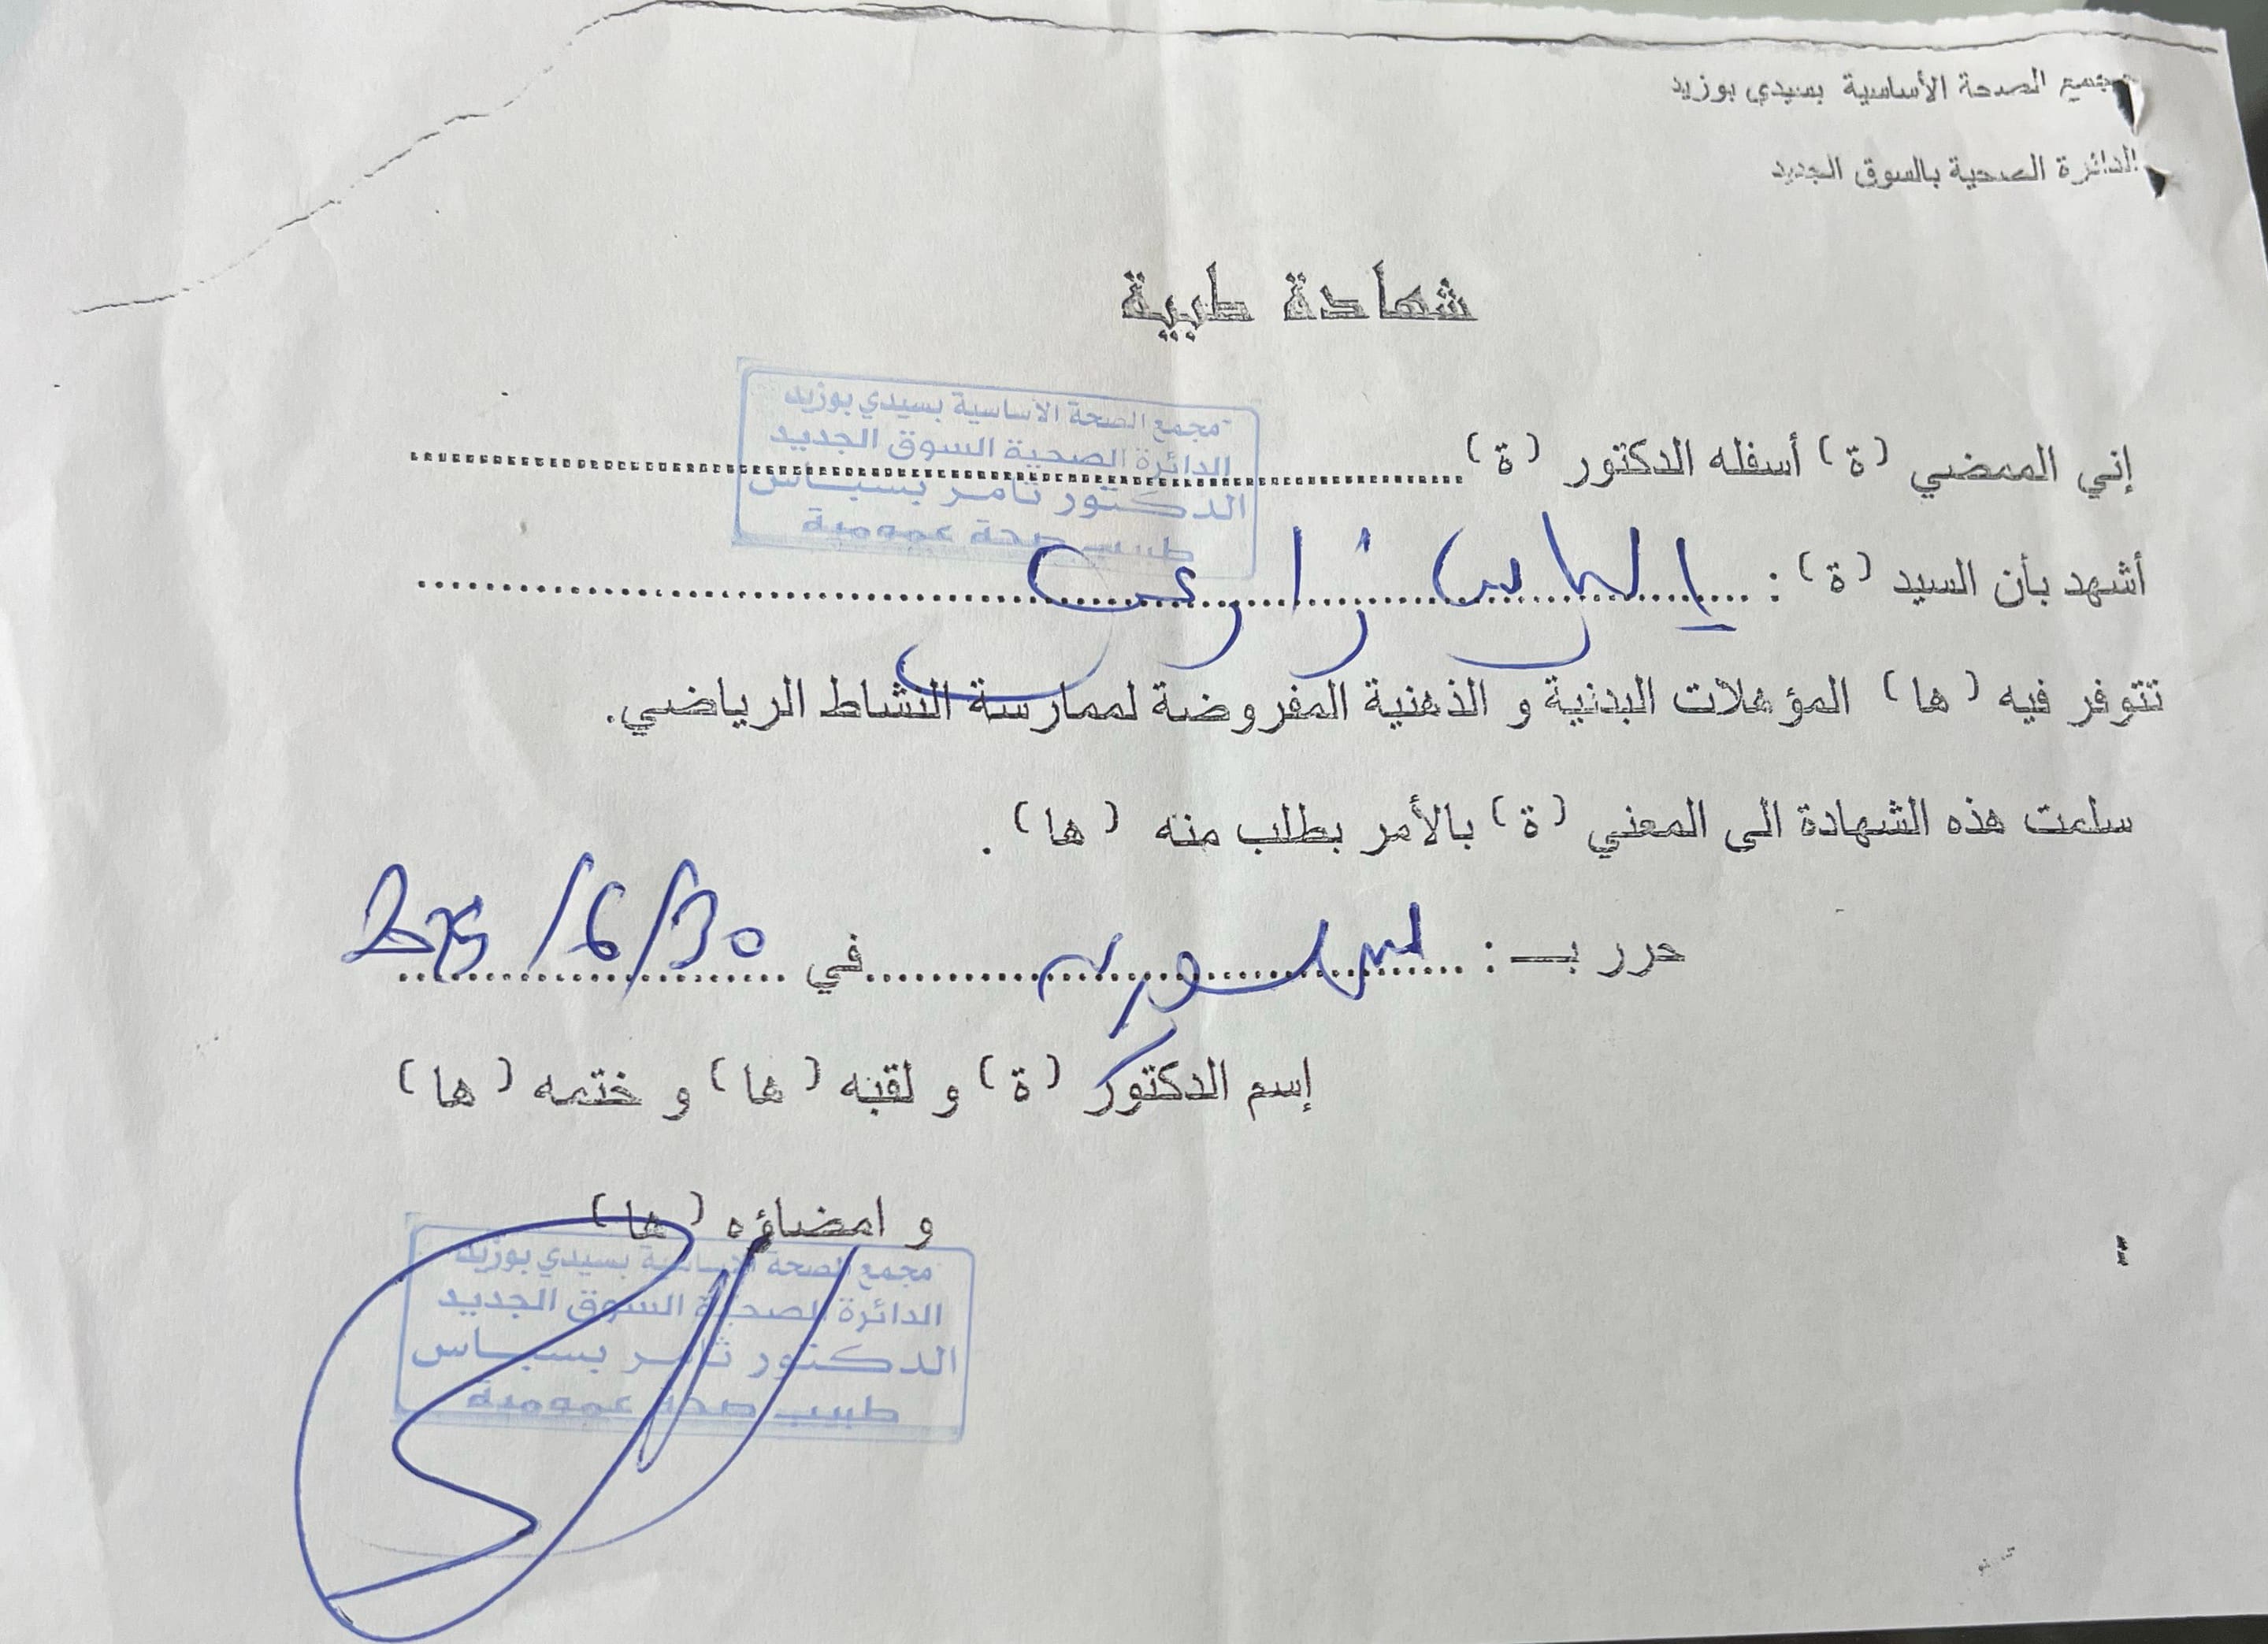 مجمع الصحة الأساسية بسيدي بوزيد
الدائرة الصحية بالسوق الجديد
شهادة طبية
مجمع الصحة الأساسية بسيدي بوزيد
الدائرة الصحية السوق الجديد
الدكتور ثامر بسباس
طبيب صحة عمومية
إني الممضي (ة) أسفله الدكتور (ة)
أشهد بأن السيد (ة) : إلياس زارعي
تتوفر فيه (ها) المؤهلات البدنية و الذهنية المفروضة لممارسة النشاط الرياضي.
سلمت هذه الشهادة الى المعني (ة) بالأمر بطلب منه (ها) .
حرر بـ : في 2025/6/30
إسم الدكتور (ة) و لقبه (ها) و ختمه (ها)
و امضاؤه (ها)
مجمع الصحة الأساسية بسيدي بوزيد
الدائرة الصحية السوق الجديد
الدكتور ثامر بسباس
طبيب صحة عمومية